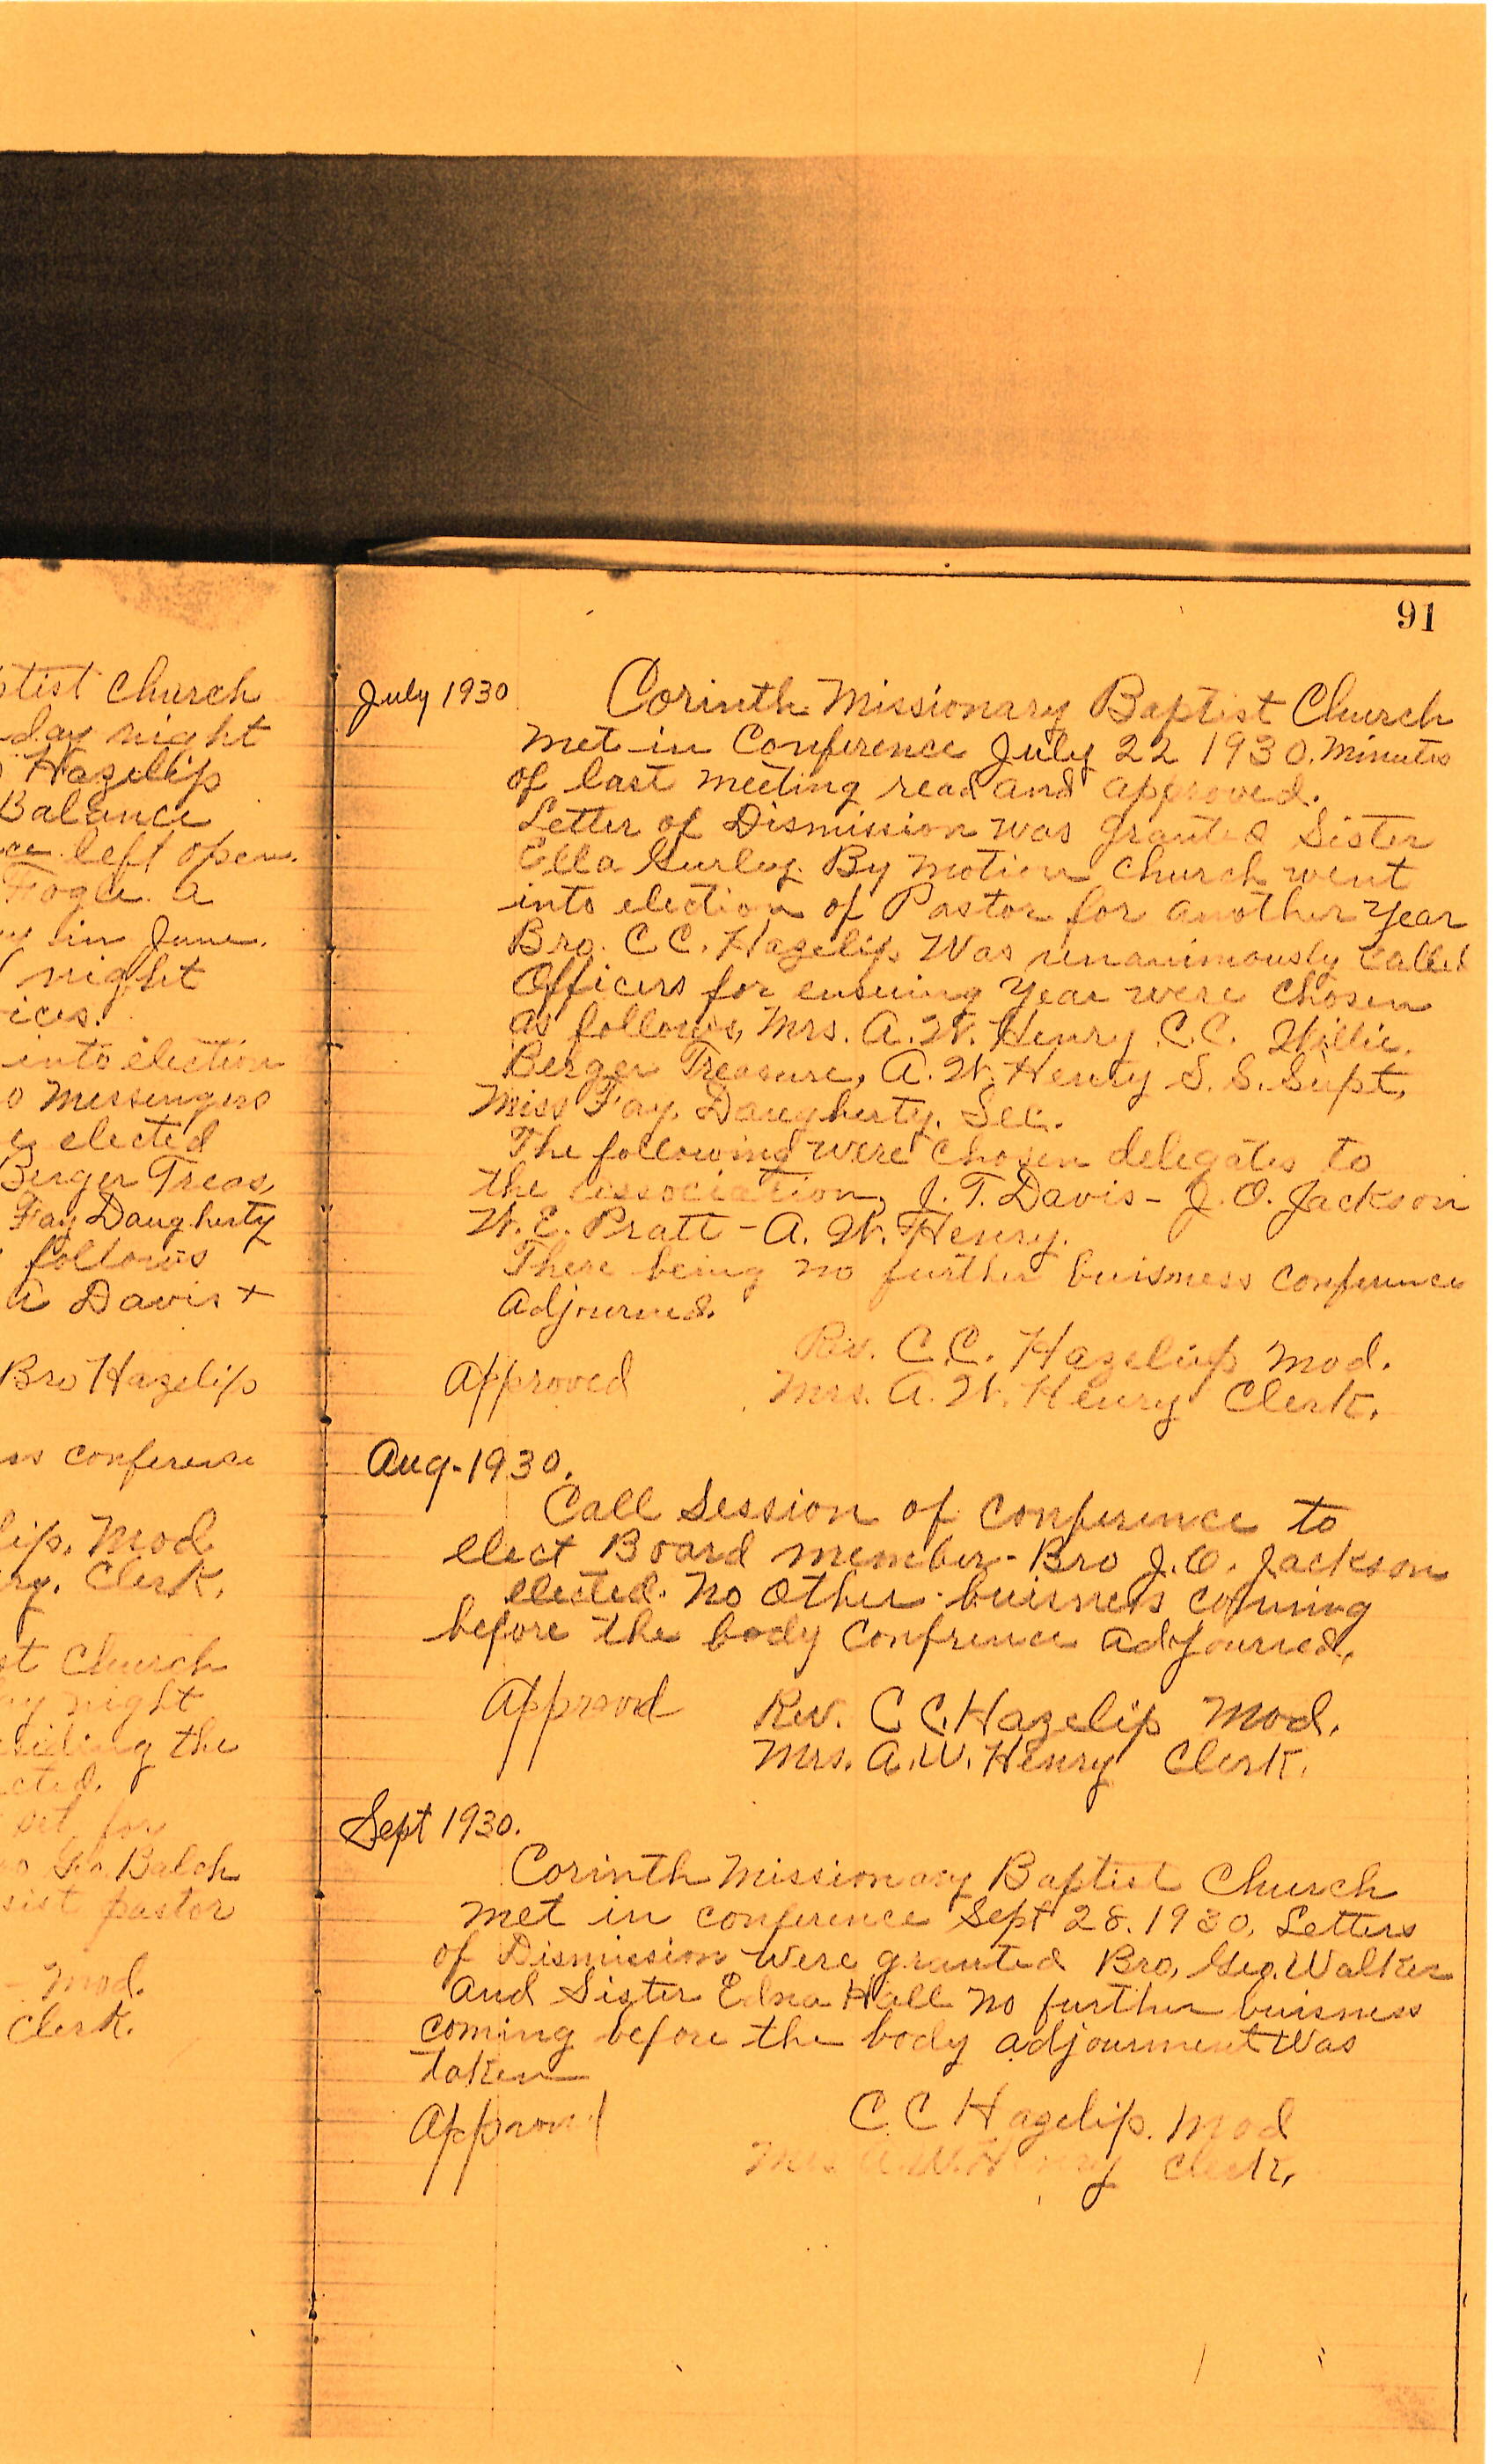 tist Church
day night
Hazelip
Balance
left open.
Fogle a
in June.
night
ices.
into election
o Messengers
elected
Berger Treas,
Fay Daugherty
follows
Davis +
Bro Hazelip
ss conference
lip, Mod
ry. Clerk.
st Church
ay night
siding the
cted.
set for
Balch
sist pastor
Mod.
Clerk.
91
July 1930
Corinth Missionary Baptist Church
met in Conference July 22 1930. Minutes
of last meeting read and approved.
Letter of Dismission was granted Sister
Ella Gurley. By motion Church went
into election of Pastor for another year
Bro. C.C. Hazelip Was unanimously called
Officers for ensuing year were chosen
as follows, Mrs. A. W. Henry C.C. Willie.
Berger Treasure, A. W. Henry S. S. Supt,
Miss Fay. Daugherty. Sec.
The following were chosen delegates to
the association, J. T. Davis - J. O. Jackson
W. E. Pratt - A. W. Henry.
There being no further buisness conference
adjourned.
Rev. C. C. Hazelip Mod.
Approved
Mrs. A. W. Henry Clerk.
Aug-1930.
Call Session of conference to
elect Board member - Bro J. O. Jackson
elected. no other buisness comming
before the body confrence adjourned.
Approvd
Rev. C C. Hazelip Mod.
Mrs. A. W. Henry Clerk.
Sept 1930.
Corinth Missionary Baptist Church
met in conference Sept 28. 1930. Letters
of Dismission were granted Bro, Geo. Walker
and Sister Edna Hall no further buisness
coming before the body adjourment Was
taken
C C Hazelip. Mod
Approvd
Mrs. A. W. Henry Clerk,